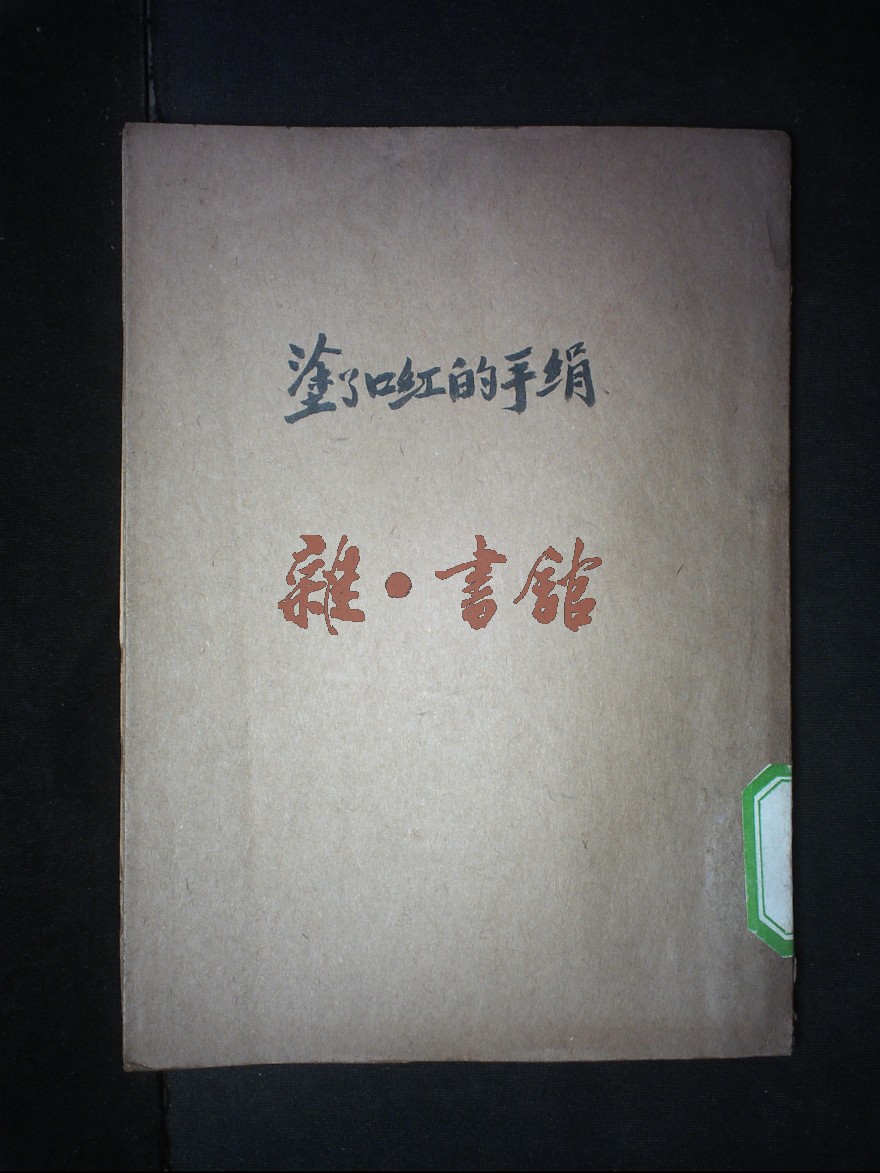 塗了口紅的手絹
雜·書館